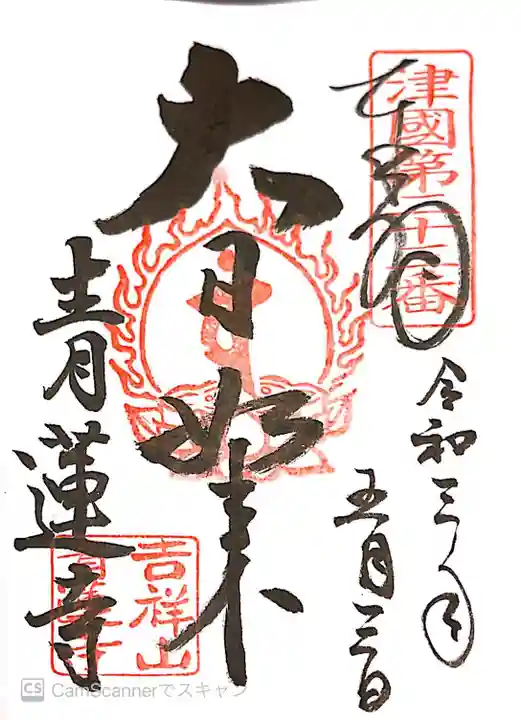 奉拝
津國第三十三番
令和三年
五月三日
大日如来
青蓮寺
吉祥山
青蓮寺
CS CamScannerでスキャン